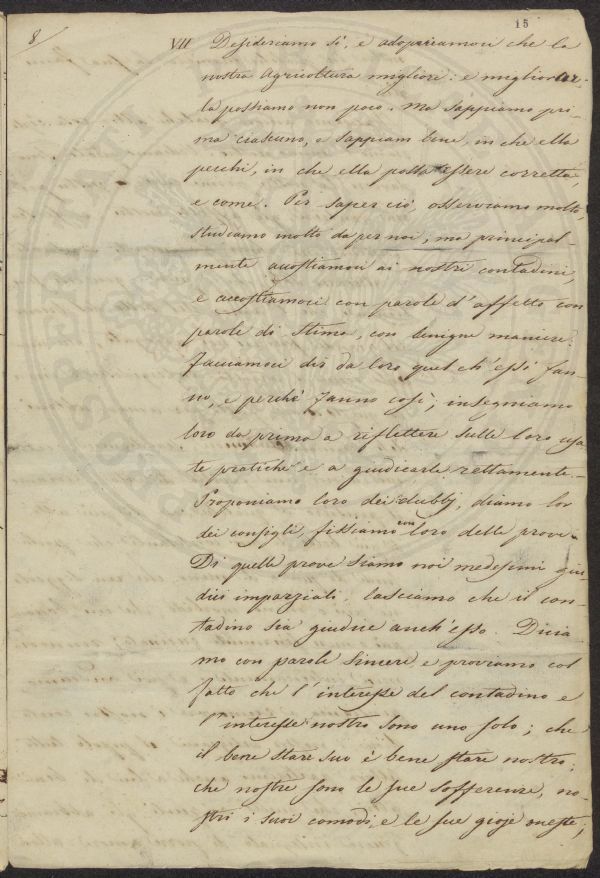 15
8/
VII Desideriamo sì, e adopriamoci che la
nostra Agricoltura migliori: e migliorar-
la possiamo non poco. Ma sappiamo pri-
ma ciascuno, e sappiam bene, in che ella
pecchi, in che ella possa essere corretta,
e come. Per saper ciò, osserviamo molto,
studiamo molto da per noi; ma principal-
mente accostiamoci ai nostri contadini,
e accostiamoci con parole d'affetto con
parole di stima, con benigne maniere.
Facciamoci dir da loro quel ch'essi fan-
no, e perchè fanno così; insegniamo
loro da prima a riflettere sulle loro usa
te pratiche e a giudicarle rettamente.
Proponiamo loro dei dubbj, diamo lor
dei consigli, fissiamo con loro delle prove.
Di quelle prove siamo noi medesimi giu
dici imparziali, lasciamo che il con-
tadino sia giudice anch'esso. Dicia
mo con parole sincere, e proviamo col
fatto che l'interesse del contadino e
l'interesse nostro sono uno solo; che
il bene stare suo è bene stare nostro;
che nostre sono le sue sofferenze, no-
stri i suoi comodi, e le sue gioje oneste;